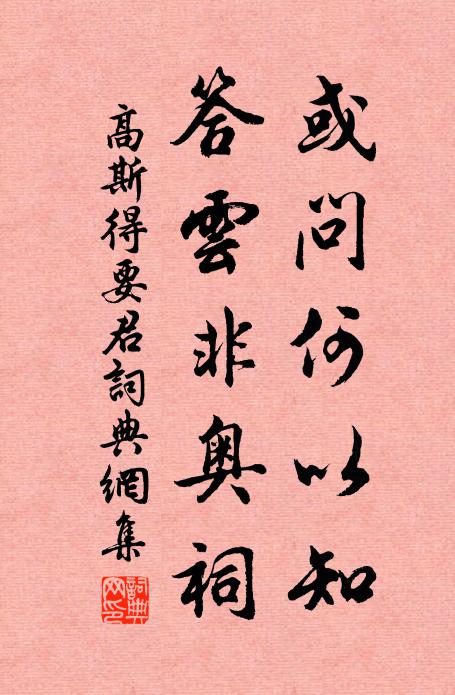 或問何以知
答雲非奧祠
高斯得要君詞典網集
詞典網印